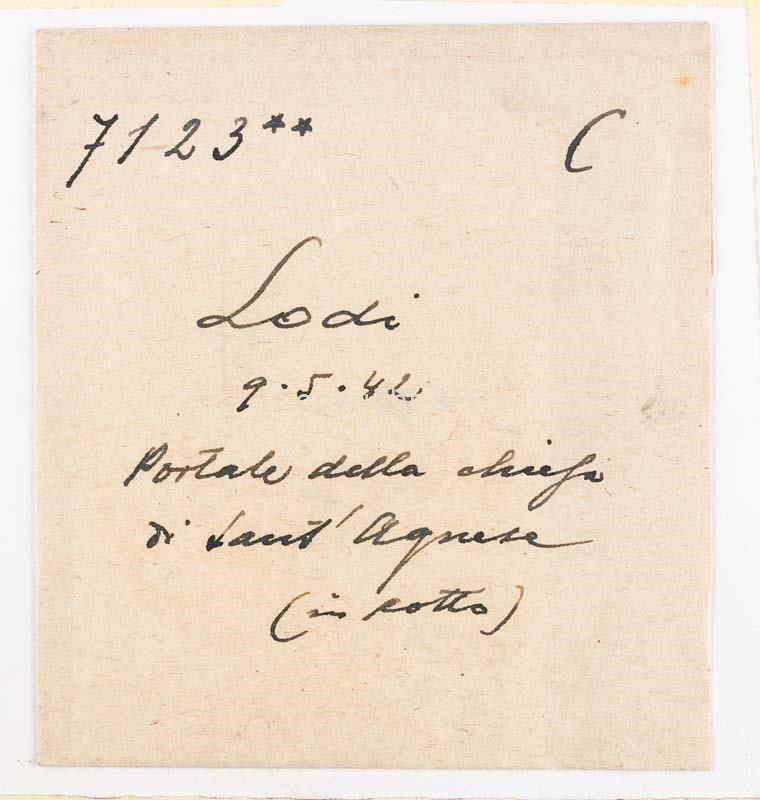 7123** C
Lodi
9.5.42
Portale della chiesa
di Sant'Agnese
(in cotto)